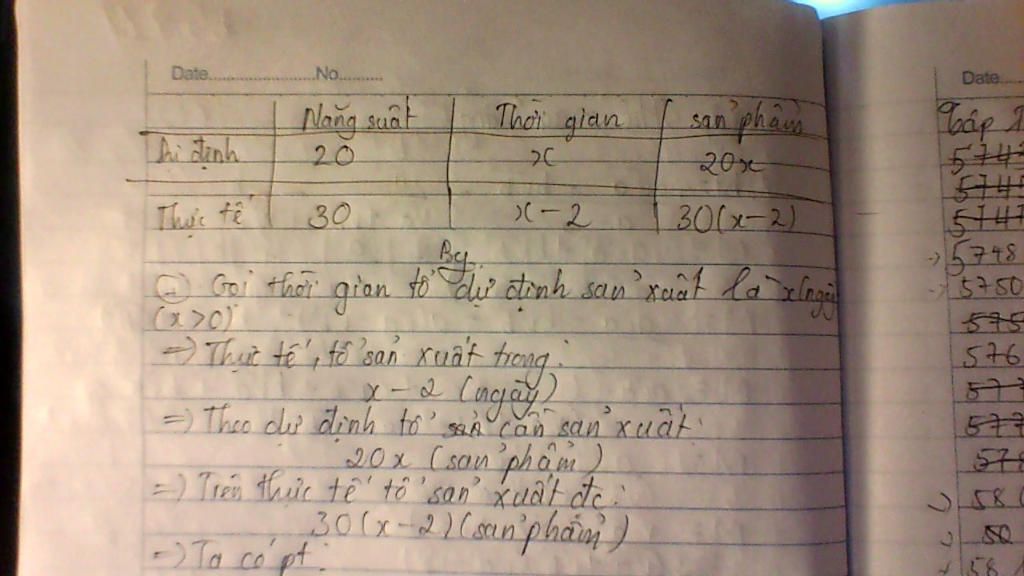 Date.....................No..........
Năng suất Thời gian sản phẩm
Dự định 20 x 20x
Thực tế 30 x-2 30(x-2)
Gọi thời gian tổ dự định sản xuất là x(ngày
(x>0)
=) Thực tế, tổ sản xuất trong:
x-2 (ngày)
=) Theo dự định tổ cần sản xuất:
20x (sản phẩm)
=) Trên thực tế tổ sản xuất đc:
30(x-2)(sản phẩm)
=) Ta có pt:
Date....
5747
5748
5750
575
576
577
577
578
58
50
58